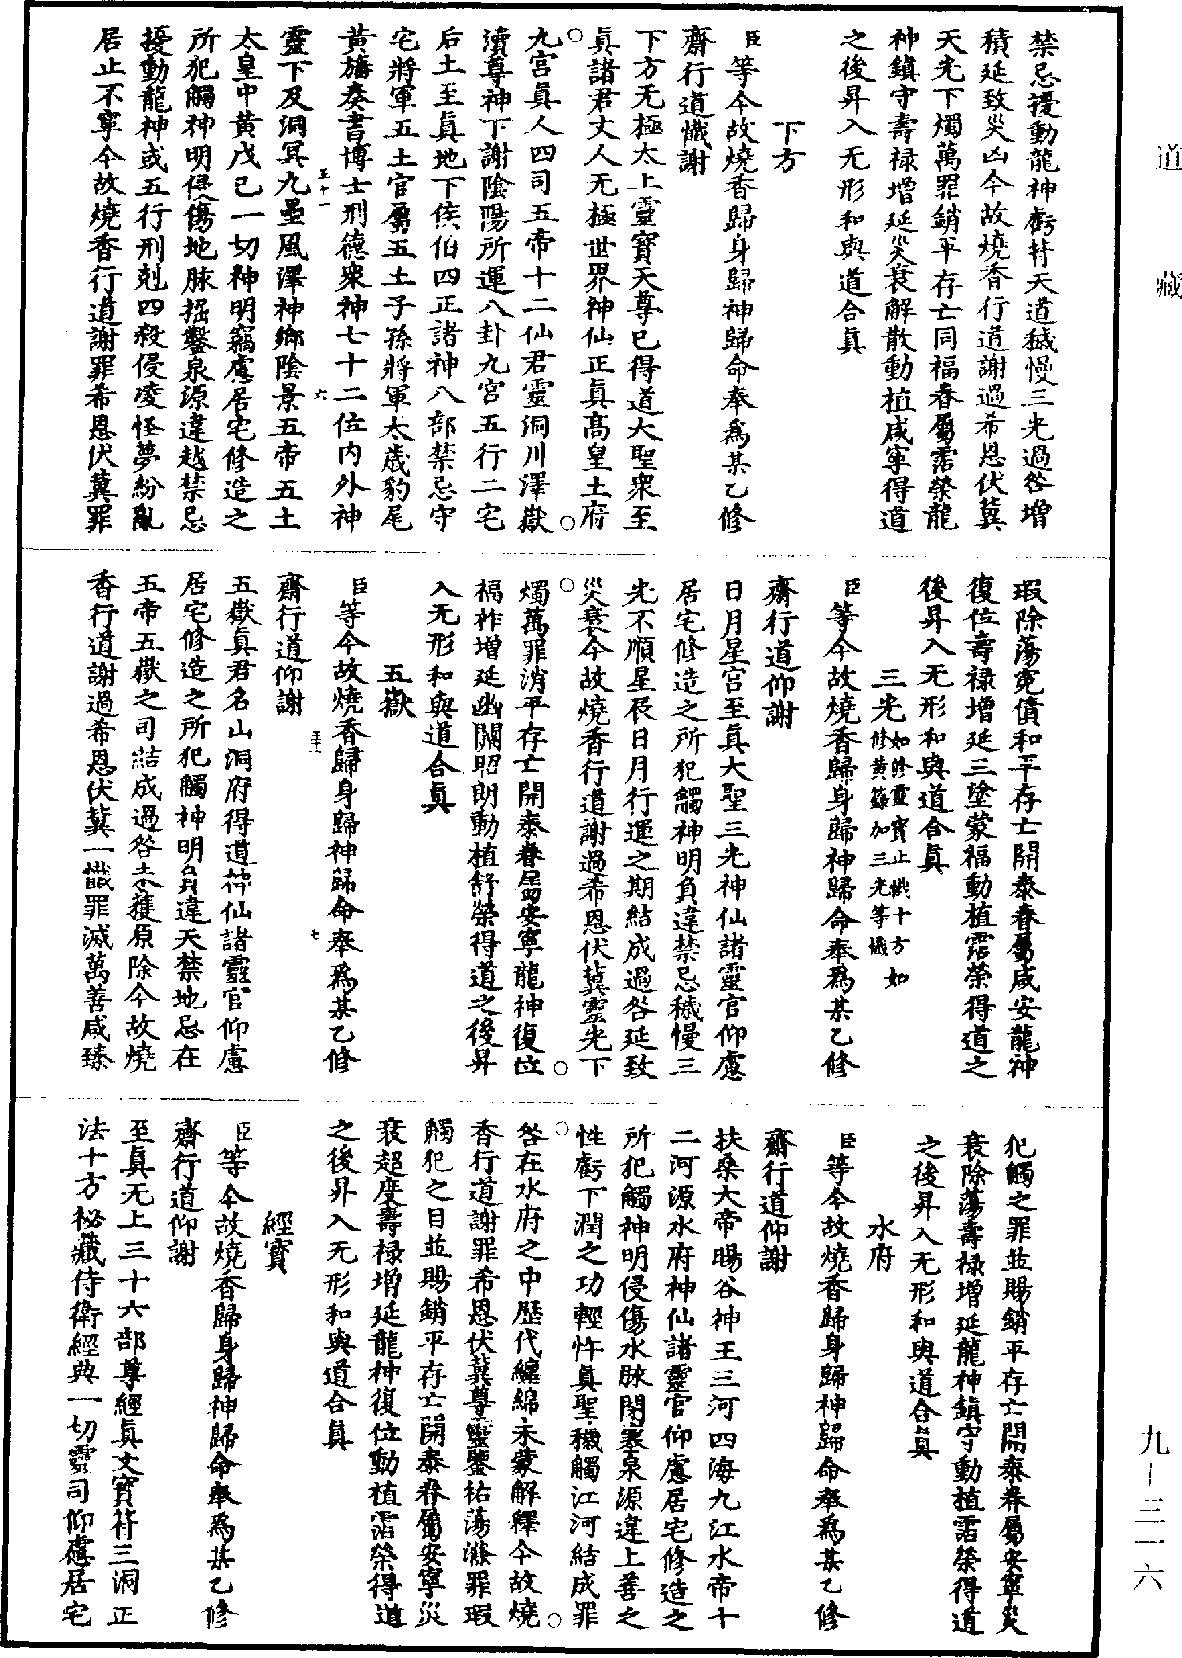 道藏
禁忌擾動龍神虧犯天道穢慢三光過咎增
積延致災凶今故燒香行道謝過希恩伏冀
天光下燭萬罪銷平存亡同福眷屬霑榮龍
神鎮守壽祿增延災衰解散動植咸寧得道
之後昇入无形和與道合真
下方
臣等今故燒香歸身歸神歸命奉爲某乙修
齋行道懺謝
下方无極太上靈寶天尊已得道大聖衆至
真諸君丈人无極世界神仙正真高皇土府
九宮真人四司五帝十二仙君靈洞川澤嶽
瀆尊神下謝陰陽所運八卦九宮五行二宅
后土至真地下侯伯四正諸神八部禁忌守
宅將軍五土官屬五土子孫將軍太歲豹尾
黃旛奏書博士刑德衆神七十二位內外神
至十一 六
靈下及洞冥九壘風澤神鄉陰景五帝五土
太皇中黃戊己一切神明竊慮居宅修造之
所犯觸神明侵傷地脉掘鑿泉源違越禁忌
擾動龍神或五行刑剋四殺侵凌怪夢紛亂
居止不寧今故燒香行道謝罪希恩伏冀罪
瑕除蕩寃債和平存亡開泰眷屬咸安龍神
復位壽祿增延三塗蒙福動植霑榮得道之
後昇入无形和與道合真
三光如修靈寶止懺十方如修黃籙加三光等懺
臣等今故燒香歸身歸神歸命奉爲某乙修
齋行道仰謝
日月星宮至真大聖三光神仙諸靈官仰慮
居宅修造之所犯觸神明負違禁忌穢慢三
光不順星辰日月行運之期結成過咎延致
災衰今故燒香行道謝過希恩伏冀靈光下
燭萬罪消平存亡開泰眷屬安寧龍神復位
福祚增延幽關昭朗動植舒榮得道之後昇
入无形和與道合真
五嶽
臣等今故燒香歸身歸神歸命奉爲某乙修
至十一 七
齋行道仰謝
五嶽真君名山洞府得道神仙諸靈官仰慮
居宅修造之所犯觸神明負違天禁地忌在
五帝五嶽之司結成過咎未獲原除今故燒
香行道謝過希恩伏冀一懺罪滅萬善咸臻
犯觸之罪並賜銷平存亡開泰眷屬安寧災
衰除蕩壽祿增延龍神鎮守動植霑榮得道
之後昇入无形和與道合真
水府
臣等今故燒香歸身歸神歸命奉爲某乙修
齋行道仰謝
扶桑大帝暘谷神王三河四海九江水帝十
二河源水府神仙諸靈官仰慮居宅修造之
所犯觸神明侵傷水脉閉塞泉源違上善之
性虧下潤之功輕忤真聖穢觸江河結成罪
咎在水府之中歷代纏綿未蒙解釋今故燒
香行道謝罪希恩伏冀尊靈鑒祐蕩滌罪瑕
觸犯之目並賜銷平存亡開泰眷屬安寧災
衰超度壽祿增延龍神復位動植霑榮得道
之後昇入无形和與道合真
經寶
臣等今故燒香歸身歸神歸命奉爲某乙修
齋行道仰謝
至真无上三十六部尊經真文寶符三洞正
法十方祕藏侍衛經典一切靈司仰慮居宅
九—三一六